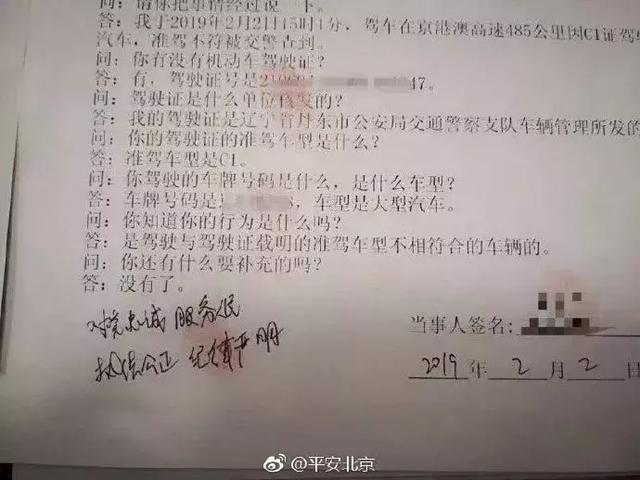 问：请你把事情经过说一下。
答：我于2019年2月2日15时1分，驾车在京港澳高速485公里因C1证驾驶
汽车，准驾不符被交警查到。
问：你有没有机动车驾驶证？
答：有，驾驶证号是2 47。
问：驾驶证是什么单位核发的？
答：我的驾驶证是辽宁省丹东市公安局交通警察支队车辆管理所发的
问：你的驾驶证的准驾车型是什么？
答：准驾车型是C1。
问：你驾驶的车牌号码是什么，是什么车型？
答：车牌号码是 8，车型是大型汽车。
问：你知道你的行为是什么吗？
答：是驾驶与驾驶证载明的准驾车型不相符合的车辆的。
问：你还有什么要补充的吗？
答：没有了。
对党忠诚 服务人民
执法公正 纪律严明
当事人签名：
2019 年 2 月 2 日
@平安北京